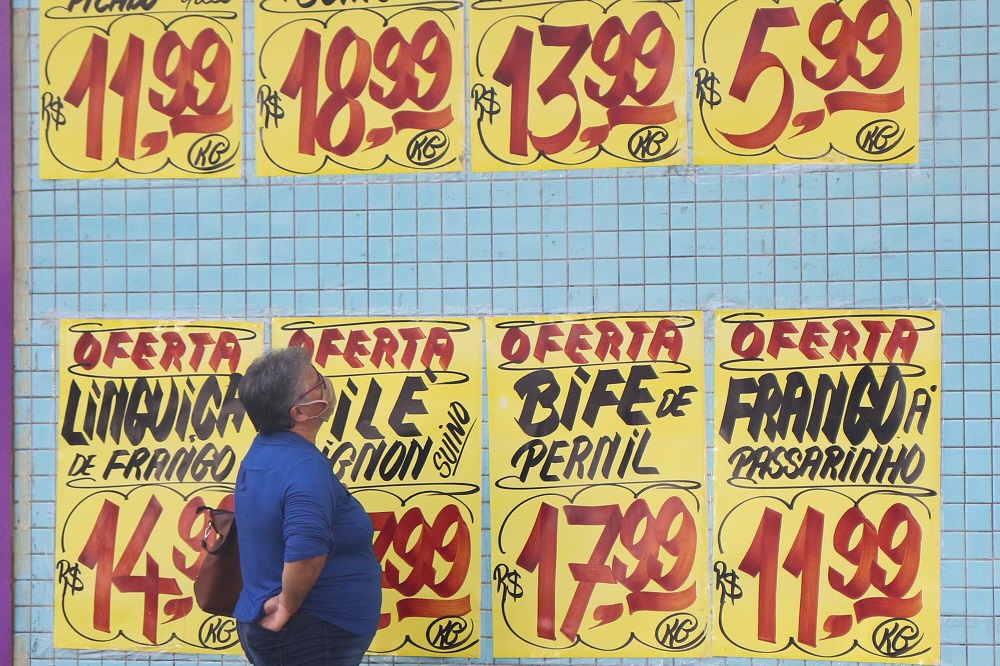 R$ 11,99 KG
R$ 18,99 KG
R$ 13,99 KG
R$ 5,99 KG
OFERTA
LINGUIÇA
DE FRANGO
R$ 14,9
KG
OFERTA
ILÉ
IGNON SUÍNO
7,99
KG
OFERTA
BIFE DE
PERNIL
R$ 17,99
KG
OFERTA
FRANGO À
PASSARINHO
R$ 11,99
KG